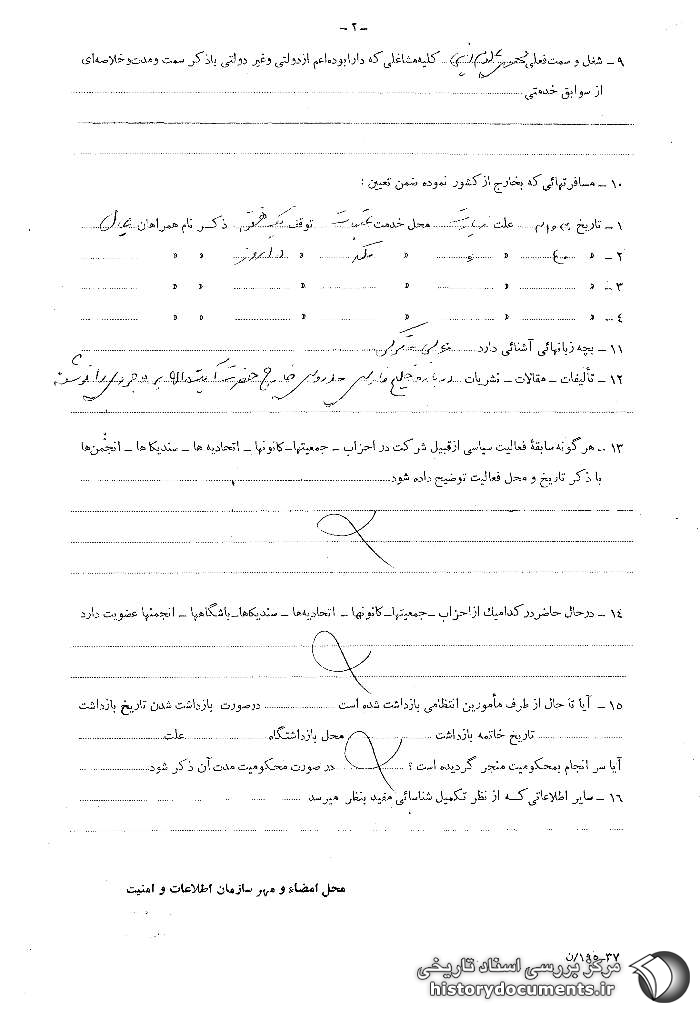 -۲-
۹ - شغل و سمت فعلی ... کلیه‌مشاغلی که دارابوده‌اعم ازدولتی وغیر دولتی باذکر سمت ومدت‌وخلاصه‌ای
از سوابق خدمتی
۱۰ - مسافرتهائی که بخارج از کشور نموده ضمن تعیین :
۱ - تاریخ علت زیارت محل خدمت عتبات توقف یک هفته ذکر نام همراهان عیال
۲ - " " " مکه " " "
۳ - " " " " " "
٤ - " " " " " "
۱۱ - بچه زبانهائی آشنائی دارد عربی - ترکی
۱۲ - تألیفات - مقالات - نشریات درباره خلیج فارس - دروس خارج حضرت آیت‌الله بروجردی را نوشته
۱۳ - هر گونه سابقهٔ فعالیت سیاسی ازقبیل شرکت در احزاب - جمعیتها - کانونها - اتحادیه ها - سندیکا ها - انجمن‌ها
با ذکر تاریخ و محل فعالیت توضیح داده شود
۱٤ - درحال حاضر در کدامیك از احزاب - جمعیتها - کانونها - اتحادیه‌ها - سندیکاها - باشگاهها - انجمنها عضویت دارد
۱۵ - آیا تا حال از طرف مأمورین انتظامی بازداشت شده است درصورت بازداشت شدن تاریخ بازداشت
تاریخ خاتمه بازداشت محل بازداشتگاه علت
آیا سر انجام بمحکومیت منجر گردیده است ؟ در صورت محکومیت مدت آن ذکر شود
۱٦ - سایر اطلاعاتی که از نظر تکمیل شناسائی مفید بنظر میرسد
محل امضاء و مهر سازمان اطلاعات و امنیت
مرکز بررسی اسناد تاریخی
historydocuments.ir